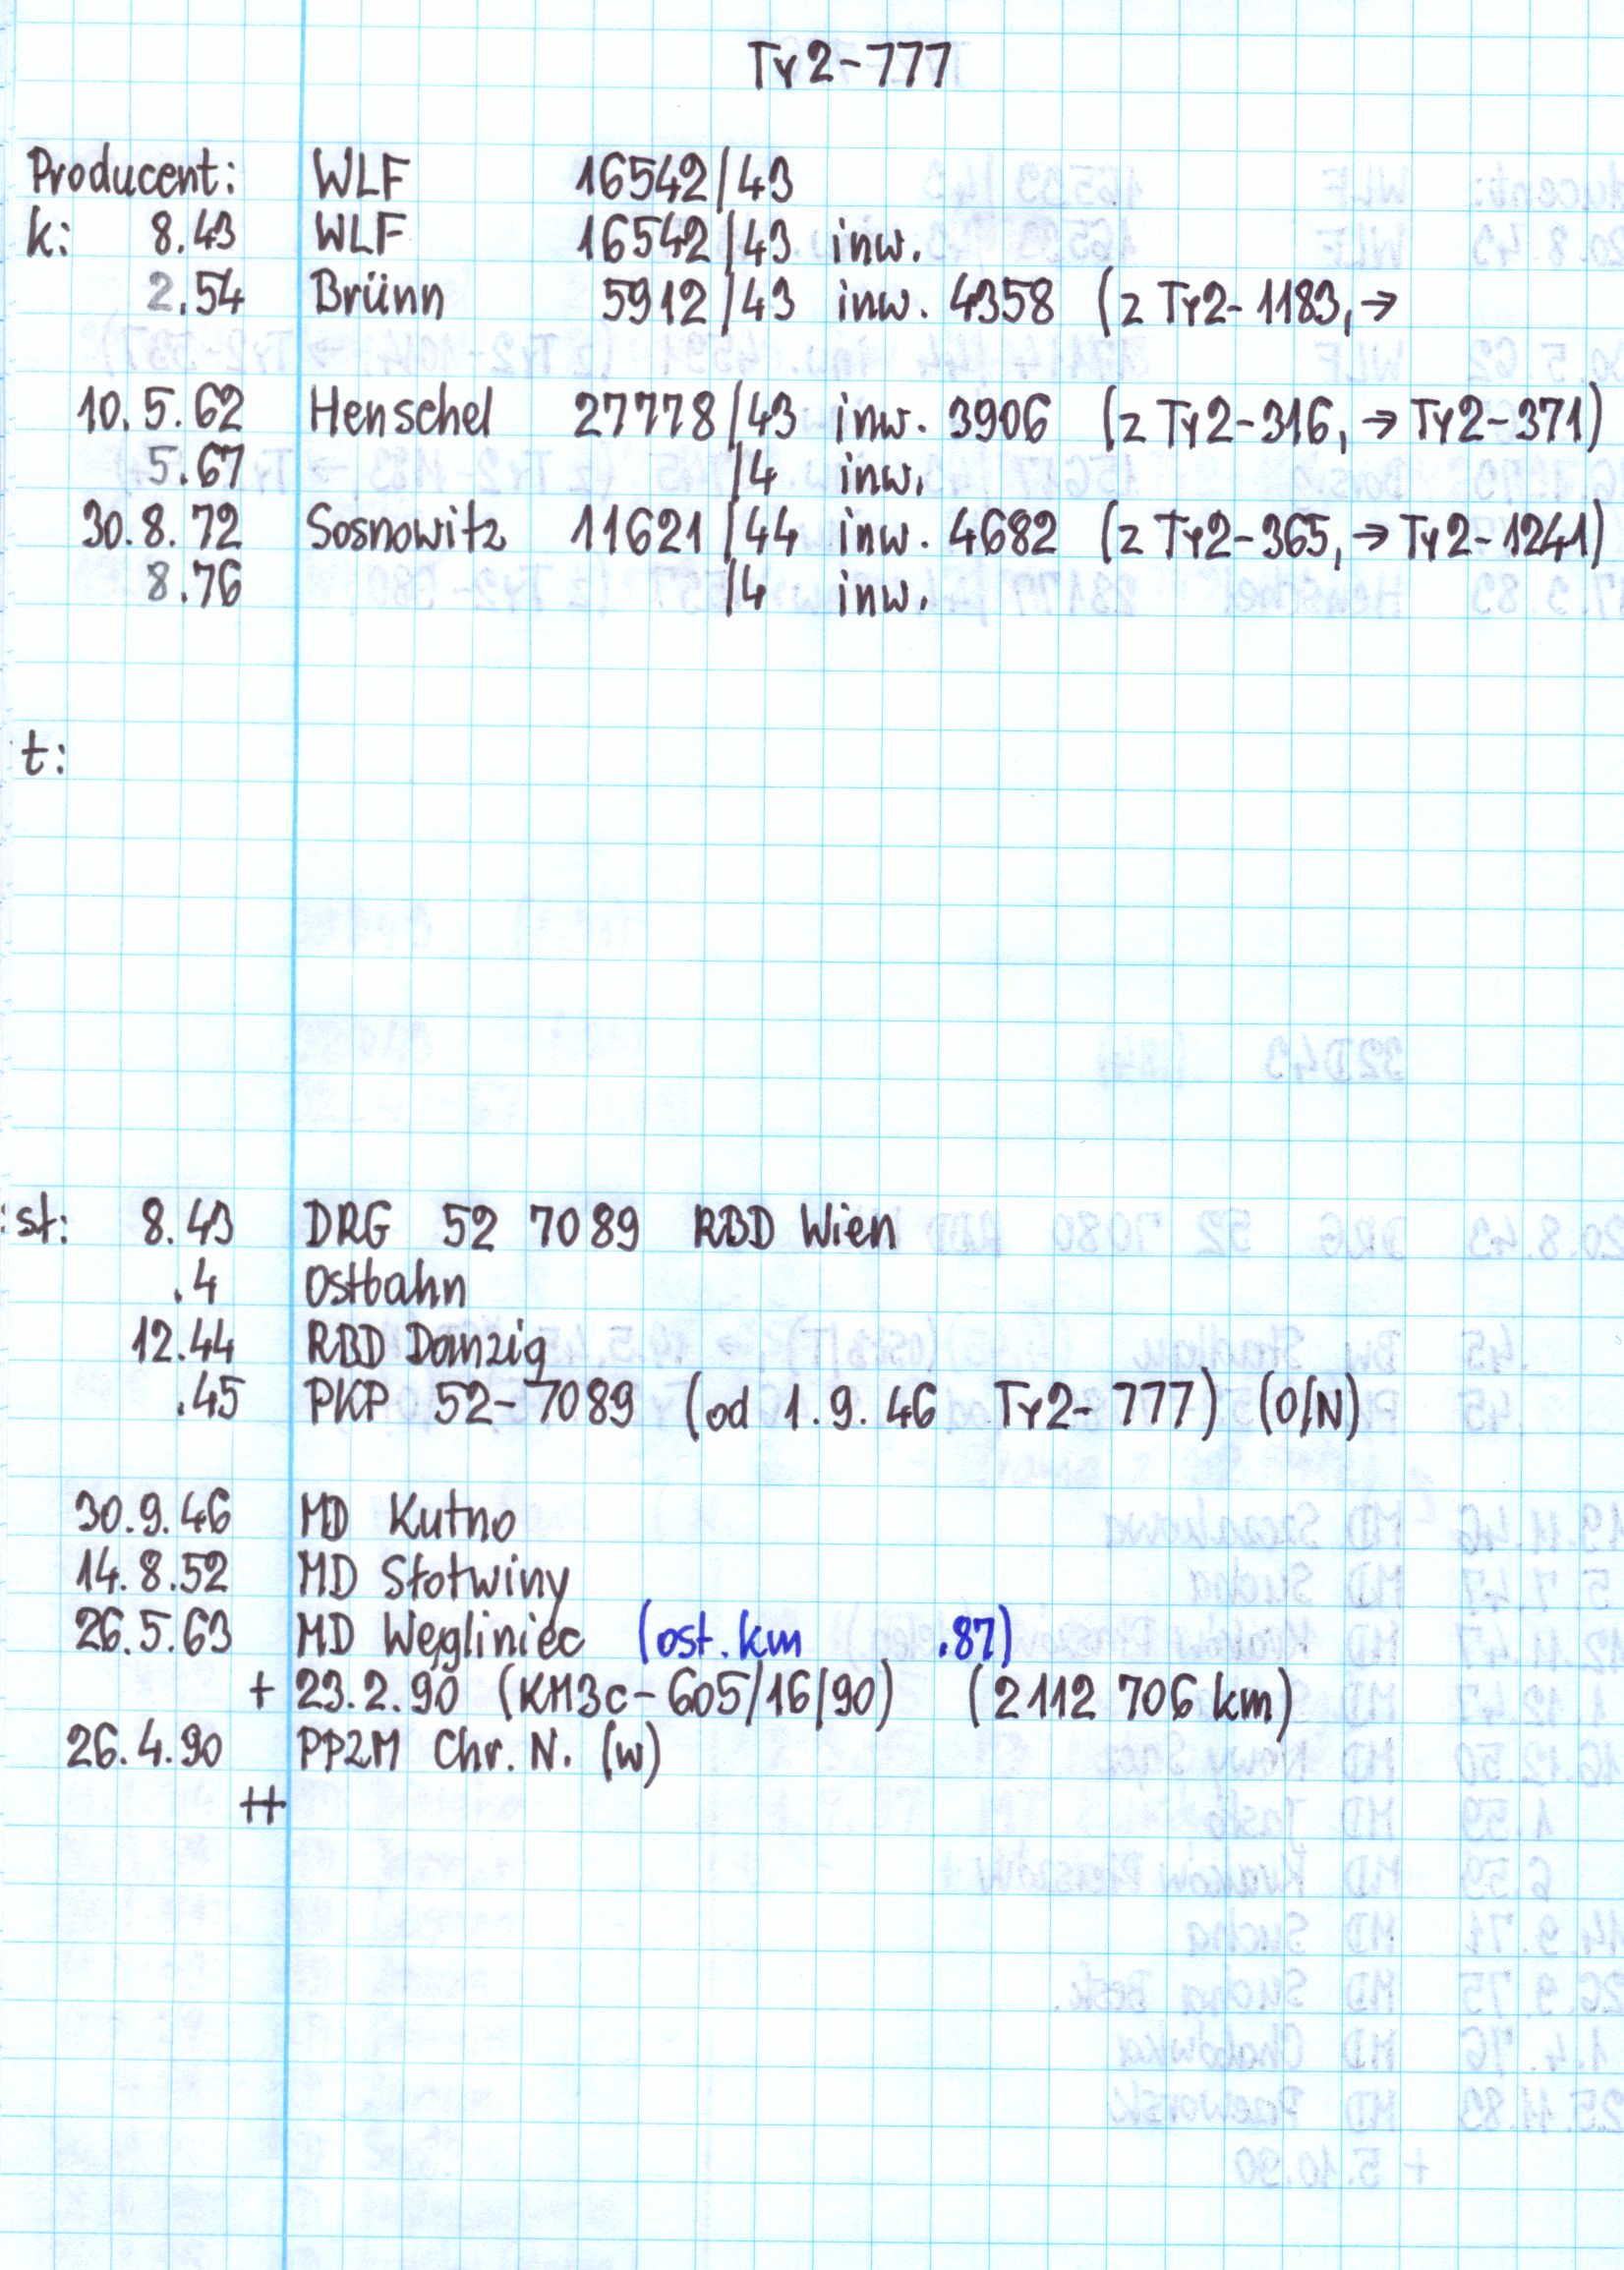 Ty2-777
Producent: WLF 16542/43
k: 8.43 WLF 16542/43 inw.
2.54 Brünn 5912/43 inw. 4358 (z Ty2-1183, →
10.5.62 Henschel 27778/43 inw. 3906 (z Ty2-316, → Ty2-371)
5.67 /4 inw.
30.8.72 Sosnowitz 11621/44 inw. 4682 (z Ty2-365, → Ty2-1241)
8.76 /4 inw.
t:
st: 8.43 DRG 52 7089 RBD Wien
.4 Ostbahn
12.44 RBD Danzig
.45 PKP 52-7089 (od 1.9.46 Ty2-777) (O/N)
30.9.46 MD Kutno
14.8.52 MD Słotwiny
26.5.63 MD Węgliniec (ost. km .87)
+ 23.2.90 (KM3c-605/16/90) (2112 706 km)
26.4.90 PPZM Chr. N. (w)
++